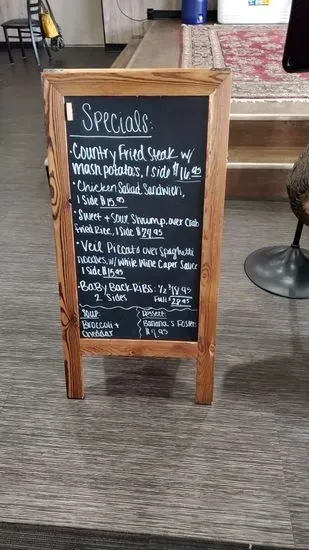 Specials:
• Country Fried Steak w/
mash potatos, 1 side $16.95
• Chicken Salad Sandwich,
1 Side $15.95
• Sweet + Sour Shrimp over Crab
Fried Rice, 1 Side $24.95
• Veil Piccata over Spaghetti
noodles, w/ White Wine Caper Sauce
1 Side $15.95
• Baby Back Ribs: 1/2 $18.95
2 Sides Full $28.95
Soup:
Broccoli +
Cheddar
Dessert
Banana's Foster